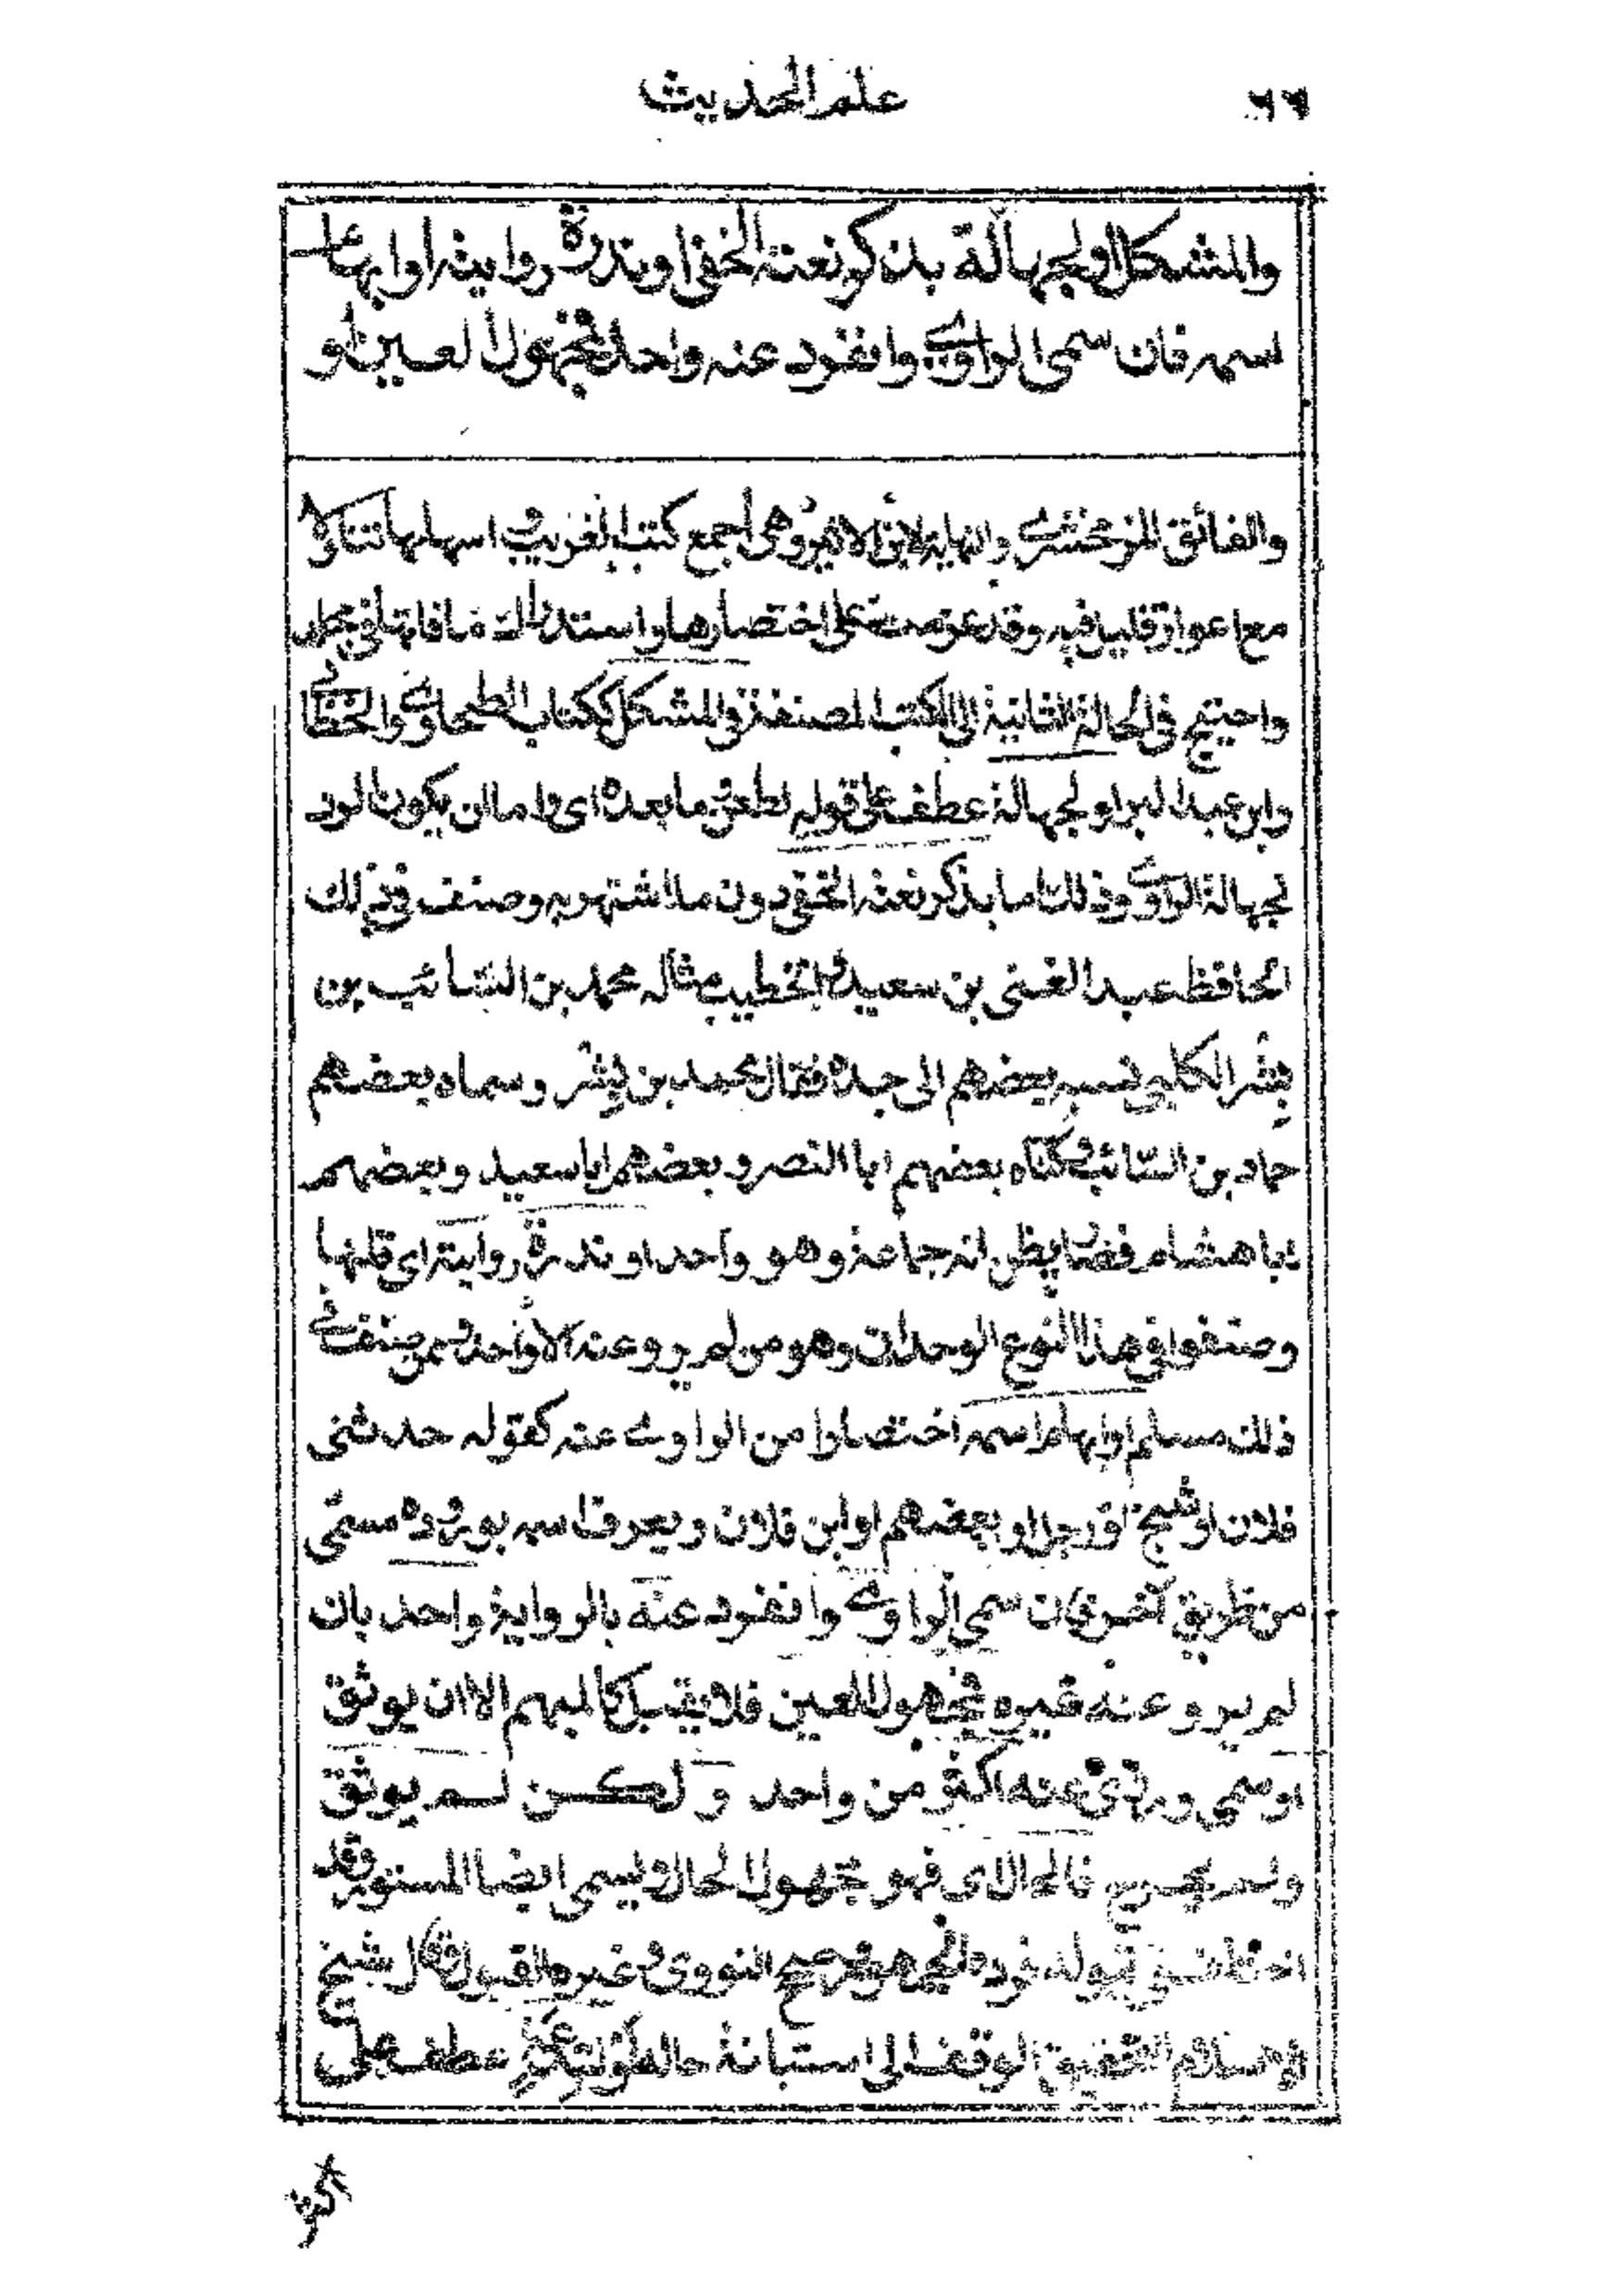 ٦٦
علم الحديث
والمشكل او لجهالة بذكر نعته الخفي او ندرة روايته او ابهام
اسمه فان سمى الراوي وانفرد عنه واحد فمجهول العين او
والفائق للزمخشري والنهاية لابن الاثير وهي اجمع كتب الغريب اسهلها تناولا
مع اعواز قليل فيه وقد عزمت على اختصارها واستدراك ما فاتها في مجلد
واحتيج في الحالة الثانية الى الكتب المصنفة في المشكل ككتاب الطحاوي والخطابي
وابن عبد البر او لجهالة عطف على قوله لطعن وما بعده اى واما ان يكون الرد
لجهالة الراوي وذلك اما بذكر نعته الخفي دون ما اشتهر به وصنف في ذلك
الحافظ عبد الغني بن سعيد والخطيب مثاله محمد بن السائب بن
بشر الكلبي نسبه بعضهم الى جده فقال محمد بن بشر وسماه بعضهم
حماد بن السائب وكناه بعضهم ابا النصر وبعضهم ابا سعيد وبعضهم
ابا هشام فصار يظن انه جماعة وهو واحد او ندرة روايته اى قلتها
وصنفوا في هذا النوع الوحدان وهو من لم يرو عنه الا واحد وممن صنف في
ذلك مسلم او ابهام اسمه اختصارا من الراوي عنه كقوله حدثنى
فلان او شيخ او رجل او بعضهم او ابن فلان ويعرف اسمه بوروده مسمى
من طريق آخر فان سمى الراوي وانفرد عنه بالرواية واحد بان
لم يرو عنه غيره فمجهول العين فلا يقبل كالمبهم الا ان يوثق
او سمى وروى عنه اكثر من واحد ولكن لم يوثق
ولم يجرح فالحال اى فهو مجهول الحال ويسمى ايضا المستور وقد
اختلف في قبوله فرده الجمهور وصحح النووي وغيره القبول وقال شيخ
الاسلام التحقيق الوقف الى استبانة حاله عطف على